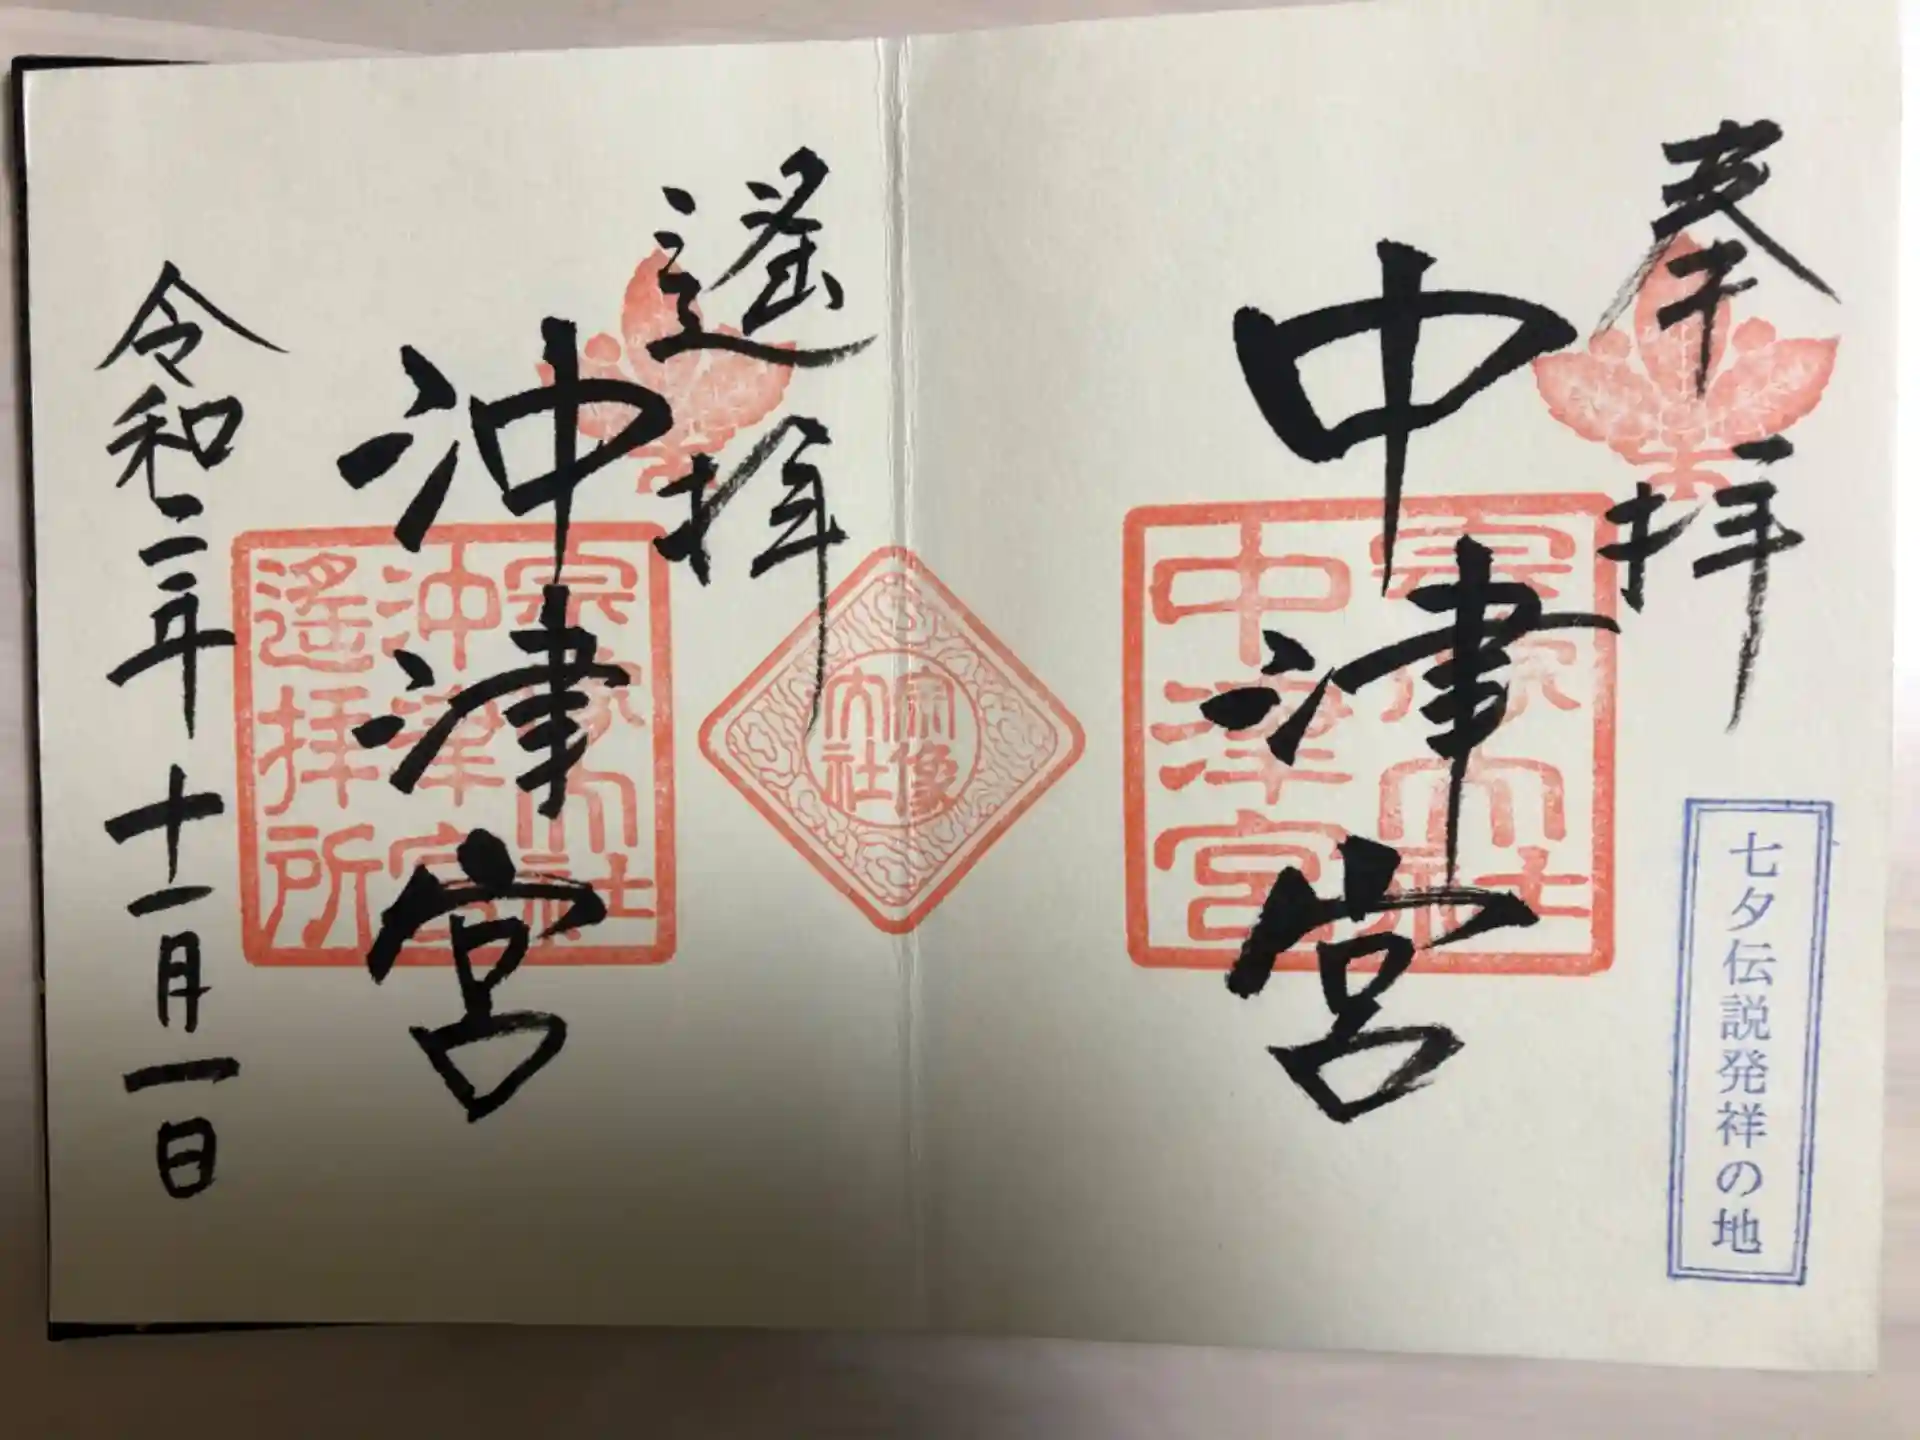 奉拝
中津宮
宗像大社
中津宮
七夕伝説発祥の地
宗像
大社
遥拝
沖津宮
宗像大社
沖津宮
遥拝所
令和二年十一月一日